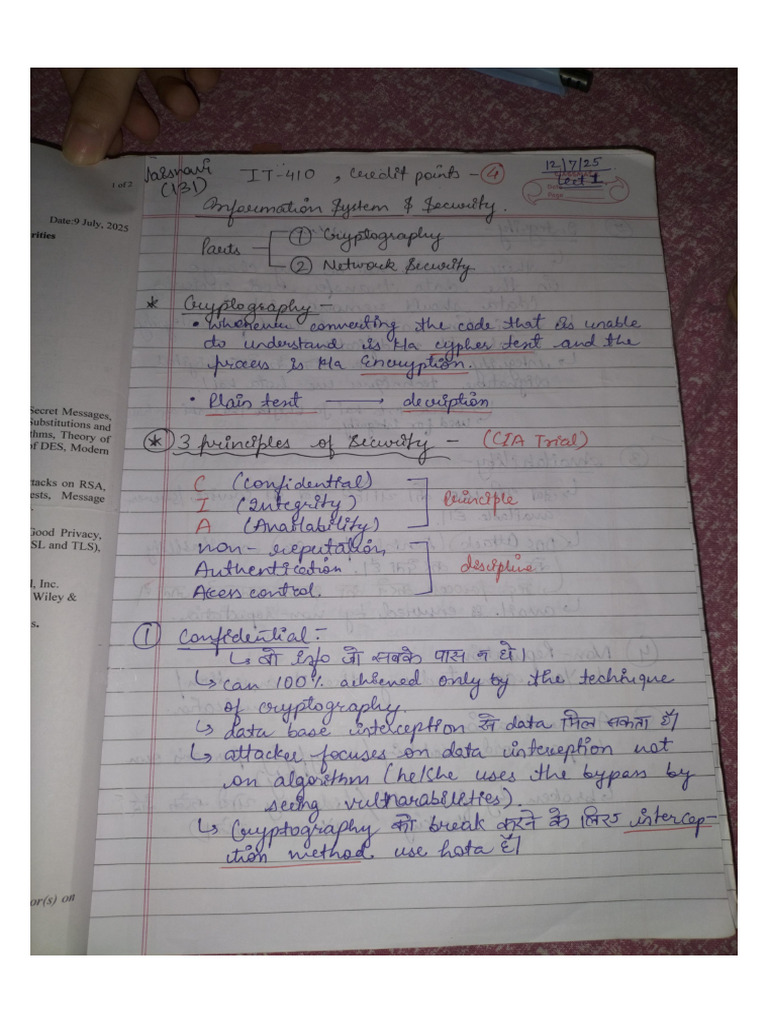 1 of 2
Date:9 July, 2025
rities
Secret Messages,
Substitutions and
thms, Theory of
of DES, Modern
ttacks on RSA,
ests, Message
Good Privacy,
SL and TLS),
l, Inc.
Wiley &
s.
or(s) on
(131)
IT-410 , Credit points - 4
12/7/25
Lect 1
Information System & Security.
Parts
① Cryptography
② Network Security
* Cryptography -
• whenever converting the code that is unable
do understand is k/a cypher text and the
process is k/a Encryption.
• Plain text → decription
* 3 principles of Security - (CIA Trial)
C (Confidential)
I (Integrity)
A (Availability)
Principle
non-reputation
Authentication
Access control.
discipline
① Confidential :-
↳ वो info जो सबके पास न हो।
↳ can 100% achieved only by the technique
of cryptography.
↳ data base interception से data मिल सकता है।
↳ attacker focuses on data interception not
on algorithm (he/she uses the bypass by
seeing vulnarabilities).
↳ Cryptography को break करने के लिए intercep-
tion method use hota है।